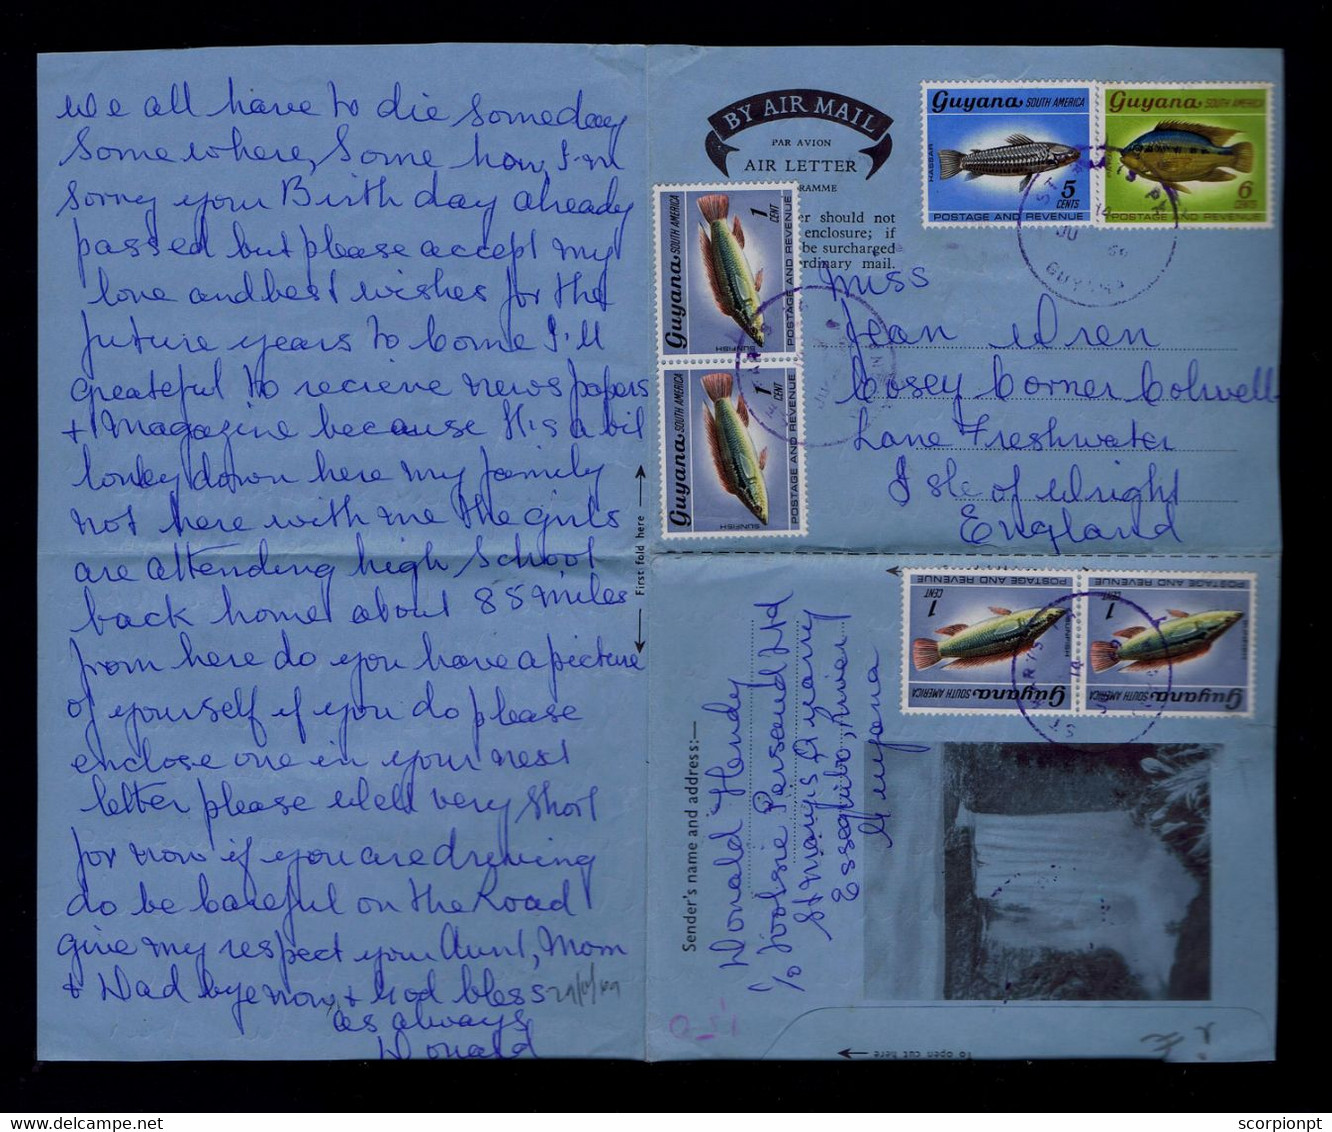 We all have to die someday
Somewhere, Some how, I'm
Sorry your Birth day already
passed but please accept my
love and best wishes for the
future years to come I'll
greateful to recieve news papers
+ Magazine because It is a bit
lonley down here my family
not here with me the girls
are attending high School
back home about 85 miles
from here do you have a picture
of yourself if you do please
enclose one in your next
letter please Well very short
for now if you are driving
do be careful on the Road
give my respect your Aunt, Mom
+ Dad bye now, + God bless
as always
Donald
First fold here
BY AIR MAIL
PAR AVION
AIR LETTER
GRAMME
er should not
enclosure; if
be surcharged
rdinary mail.
Guyana SOUTH AMERICA
HASSAR
5
CENTS
POSTAGE AND REVENUE
Guyana SOUTH AMERICA
6
CENTS
POSTAGE AND REVENUE
Guyana SOUTH AMERICA
1
CENT
SUNFISH
POSTAGE AND REVENUE
Guyana SOUTH AMERICA
1
CENT
SUNFISH
POSTAGE AND REVENUE
Miss
Jean Wren
Cosey Corner Colwell
Lane Freshwater
Isle of Wright
England
Guyana SOUTH AMERICA
1
CENT
SUNFISH
POSTAGE AND REVENUE
Guyana SOUTH AMERICA
1
CENT
SUNFISH
POSTAGE AND REVENUE
Sender's name and address:—
Donald Hendy
c/o Toolsie Persaud Ltd
St Marys Quarry
Essequibo, River
Guyana
To open cut here
scorpionpt